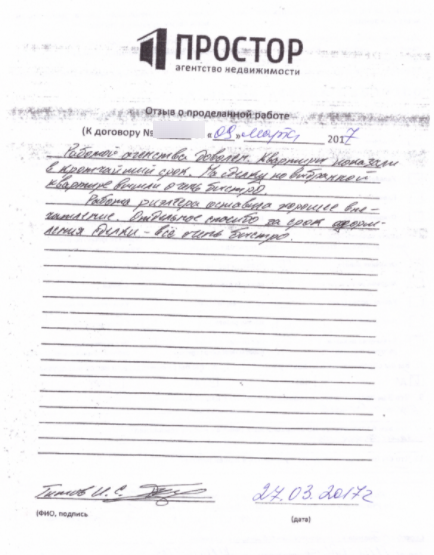 ПРОСТОР
агентство недвижимости
Отзыв о проделанной работе
(К договору № « 09 » марта 2017
Работой агенства доволен. Квартиры показали
в кратчайший срок. На сделку по выбранной
квартире вышли очень быстро.
Работа риэлтера оставила хорошее впе-
чатление. Отдельное спасибо за срок оформ-
ления сделки – всё очень быстро.
Титов И. С.
27.03.2017г
(ФИО, подпись
(дата)